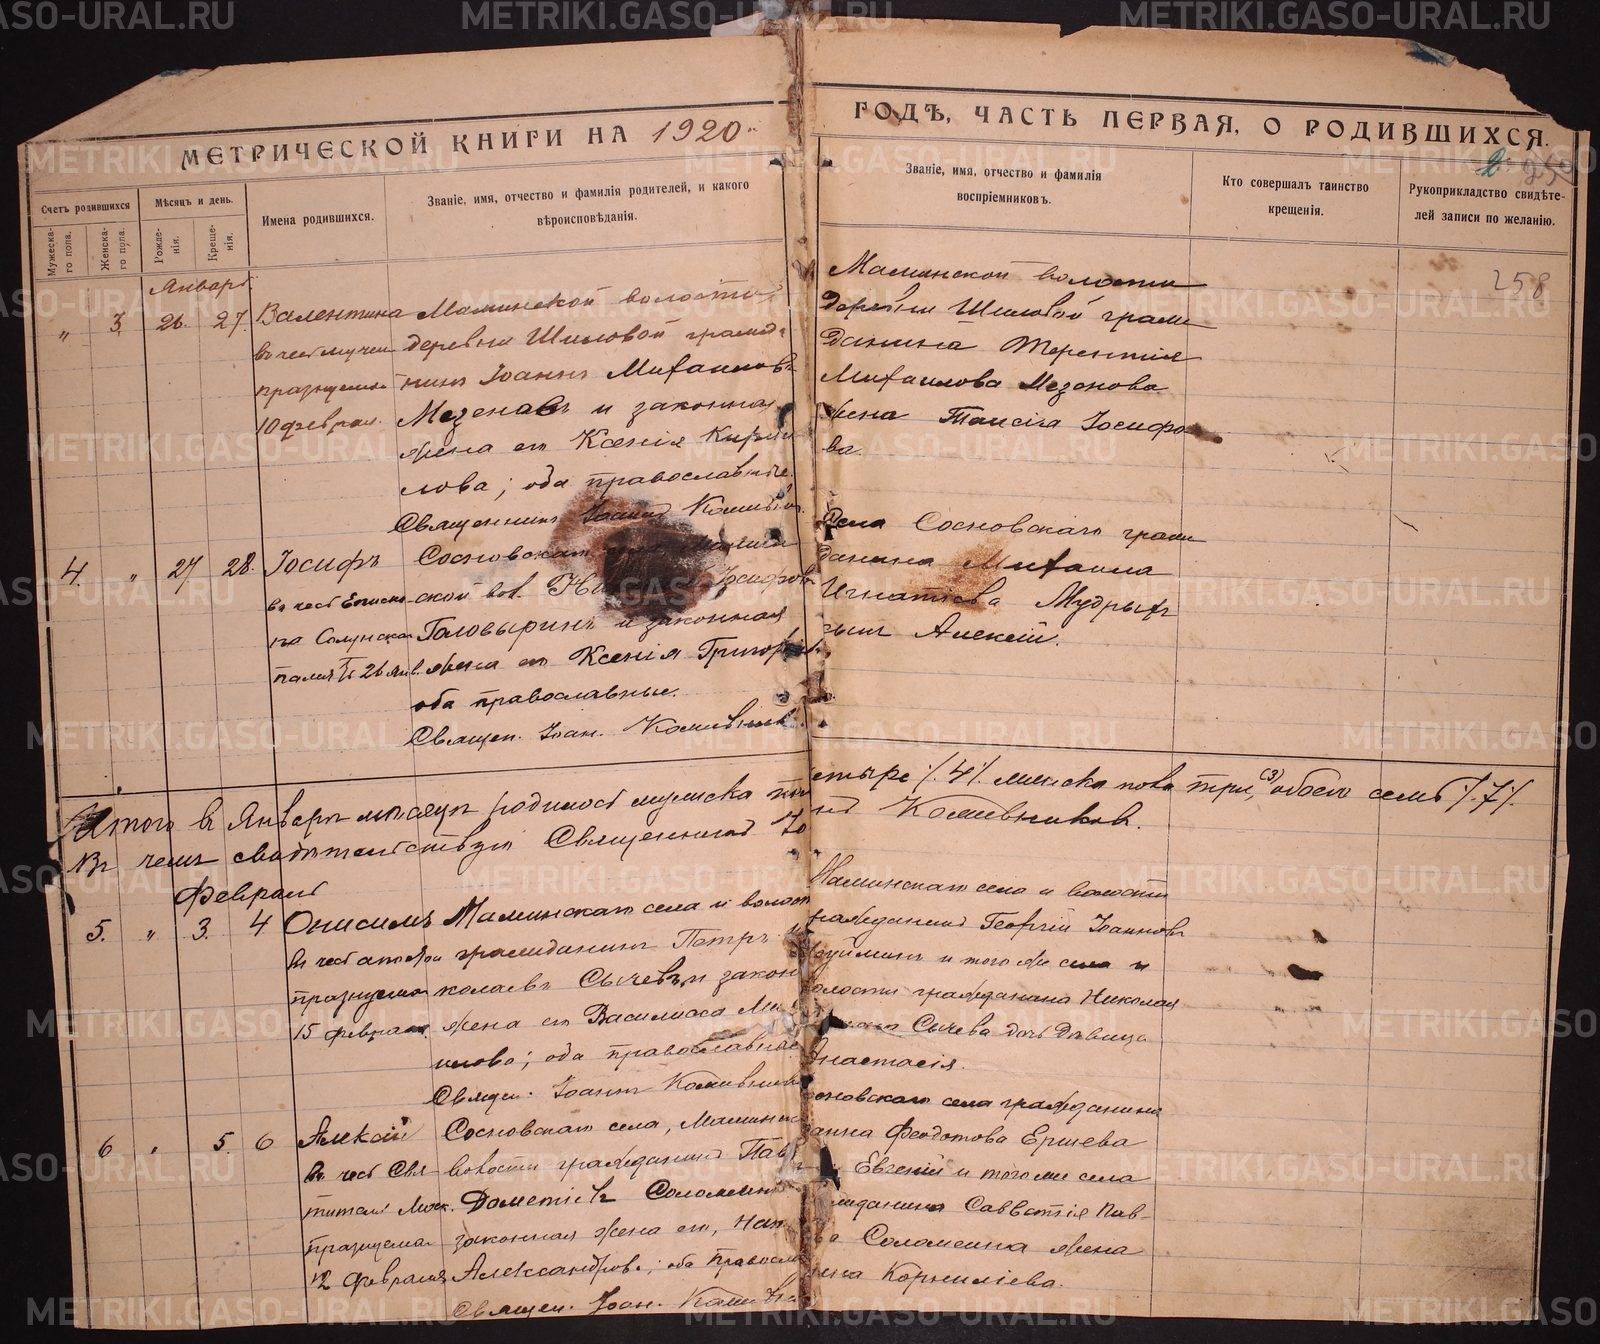 МЕТРИЧЕСКОЙ КНИГИ НА 1920
ГОДЪ, ЧАСТЬ ПЕРВАЯ, О РОДИВШИХСЯ.
Счетъ родившихся
Мужеска-го пола.
Женска-го пола.
Мѣсяцъ и день.
Рожде-нія.
Креще-нія.
Имена родившихся.
Званіе, имя, отчество и фамилія родителей, и какого
вѣроисповѣданія.
Званіе, имя, отчество и фамилія
воспріемниковъ.
Кто совершалъ таинство
крещенія.
Рукоприкладство свидѣте-
лей записи по желанію.
258
Январь.
" 3 26. 27. Валентина
въ чест мучен
празнуемой
10 феврал.
Маминской волости
деревни Шиловой гражд
нинъ Іоаннъ Михаиловъ
Мезеновъ и законная
жена его Ксенія Кирил
лова; оба православные.
Священникъ Іоаннъ
Маминской волости
деревни Шиловой граж
данина Терентія
Михаилова Мезенова
жена Таисія Іосифо
ва.
4. " 27 28. Іосифъ
въ чест Еписко
па Солунска
26 янв.
Сосновскаго
ской вол. Іосифовъ
Головыринъ и законная
жена его Ксенія Григорьев
оба православные.
Священ. Іоан.
Села Сосновскаго граж
данина Михаила
Игнатіева Мудрыхъ
сынъ Алексій.
Итого въ Январѣ мѣсяцѣ родилось мужеска
етыре /.4/. женска пола три, (3) обоего семь /.7/.
Въ чемъ свидѣтельствую Священникъ Іо
Февраль
5. " 3. 4 Онисимъ
въ чест апостол
празнуема
15 феврал.
Маминскаго села и волост
гражданинъ Петръ
колаевъ Сычевъ и закон
жена его Василиса
илова; оба православные
Священ. Іоаннъ
Маминскаго села и волости
гражданинъ Георгій Іоанновъ
и того же села и
волости гражданина Николая
Сычева дочь Дѣвица
Анастасія.
6 " 5. 6 Алексій
въ чест Свя
тителя Моск.
празнуема
12 февраля
Сосновскаго села, Маминс
волости гражданинъ Пав
Дометіевъ Соломеин
законная жена его,
Александрова; оба правосла
Священ. Іоан.
сновскаго села гражданина
Феодотова Ершева
Евгеній и того же села
жданина Савватія Пав-
ва Соломеина жена
Корниліева.
METRIKI.GASO-URAL.RU